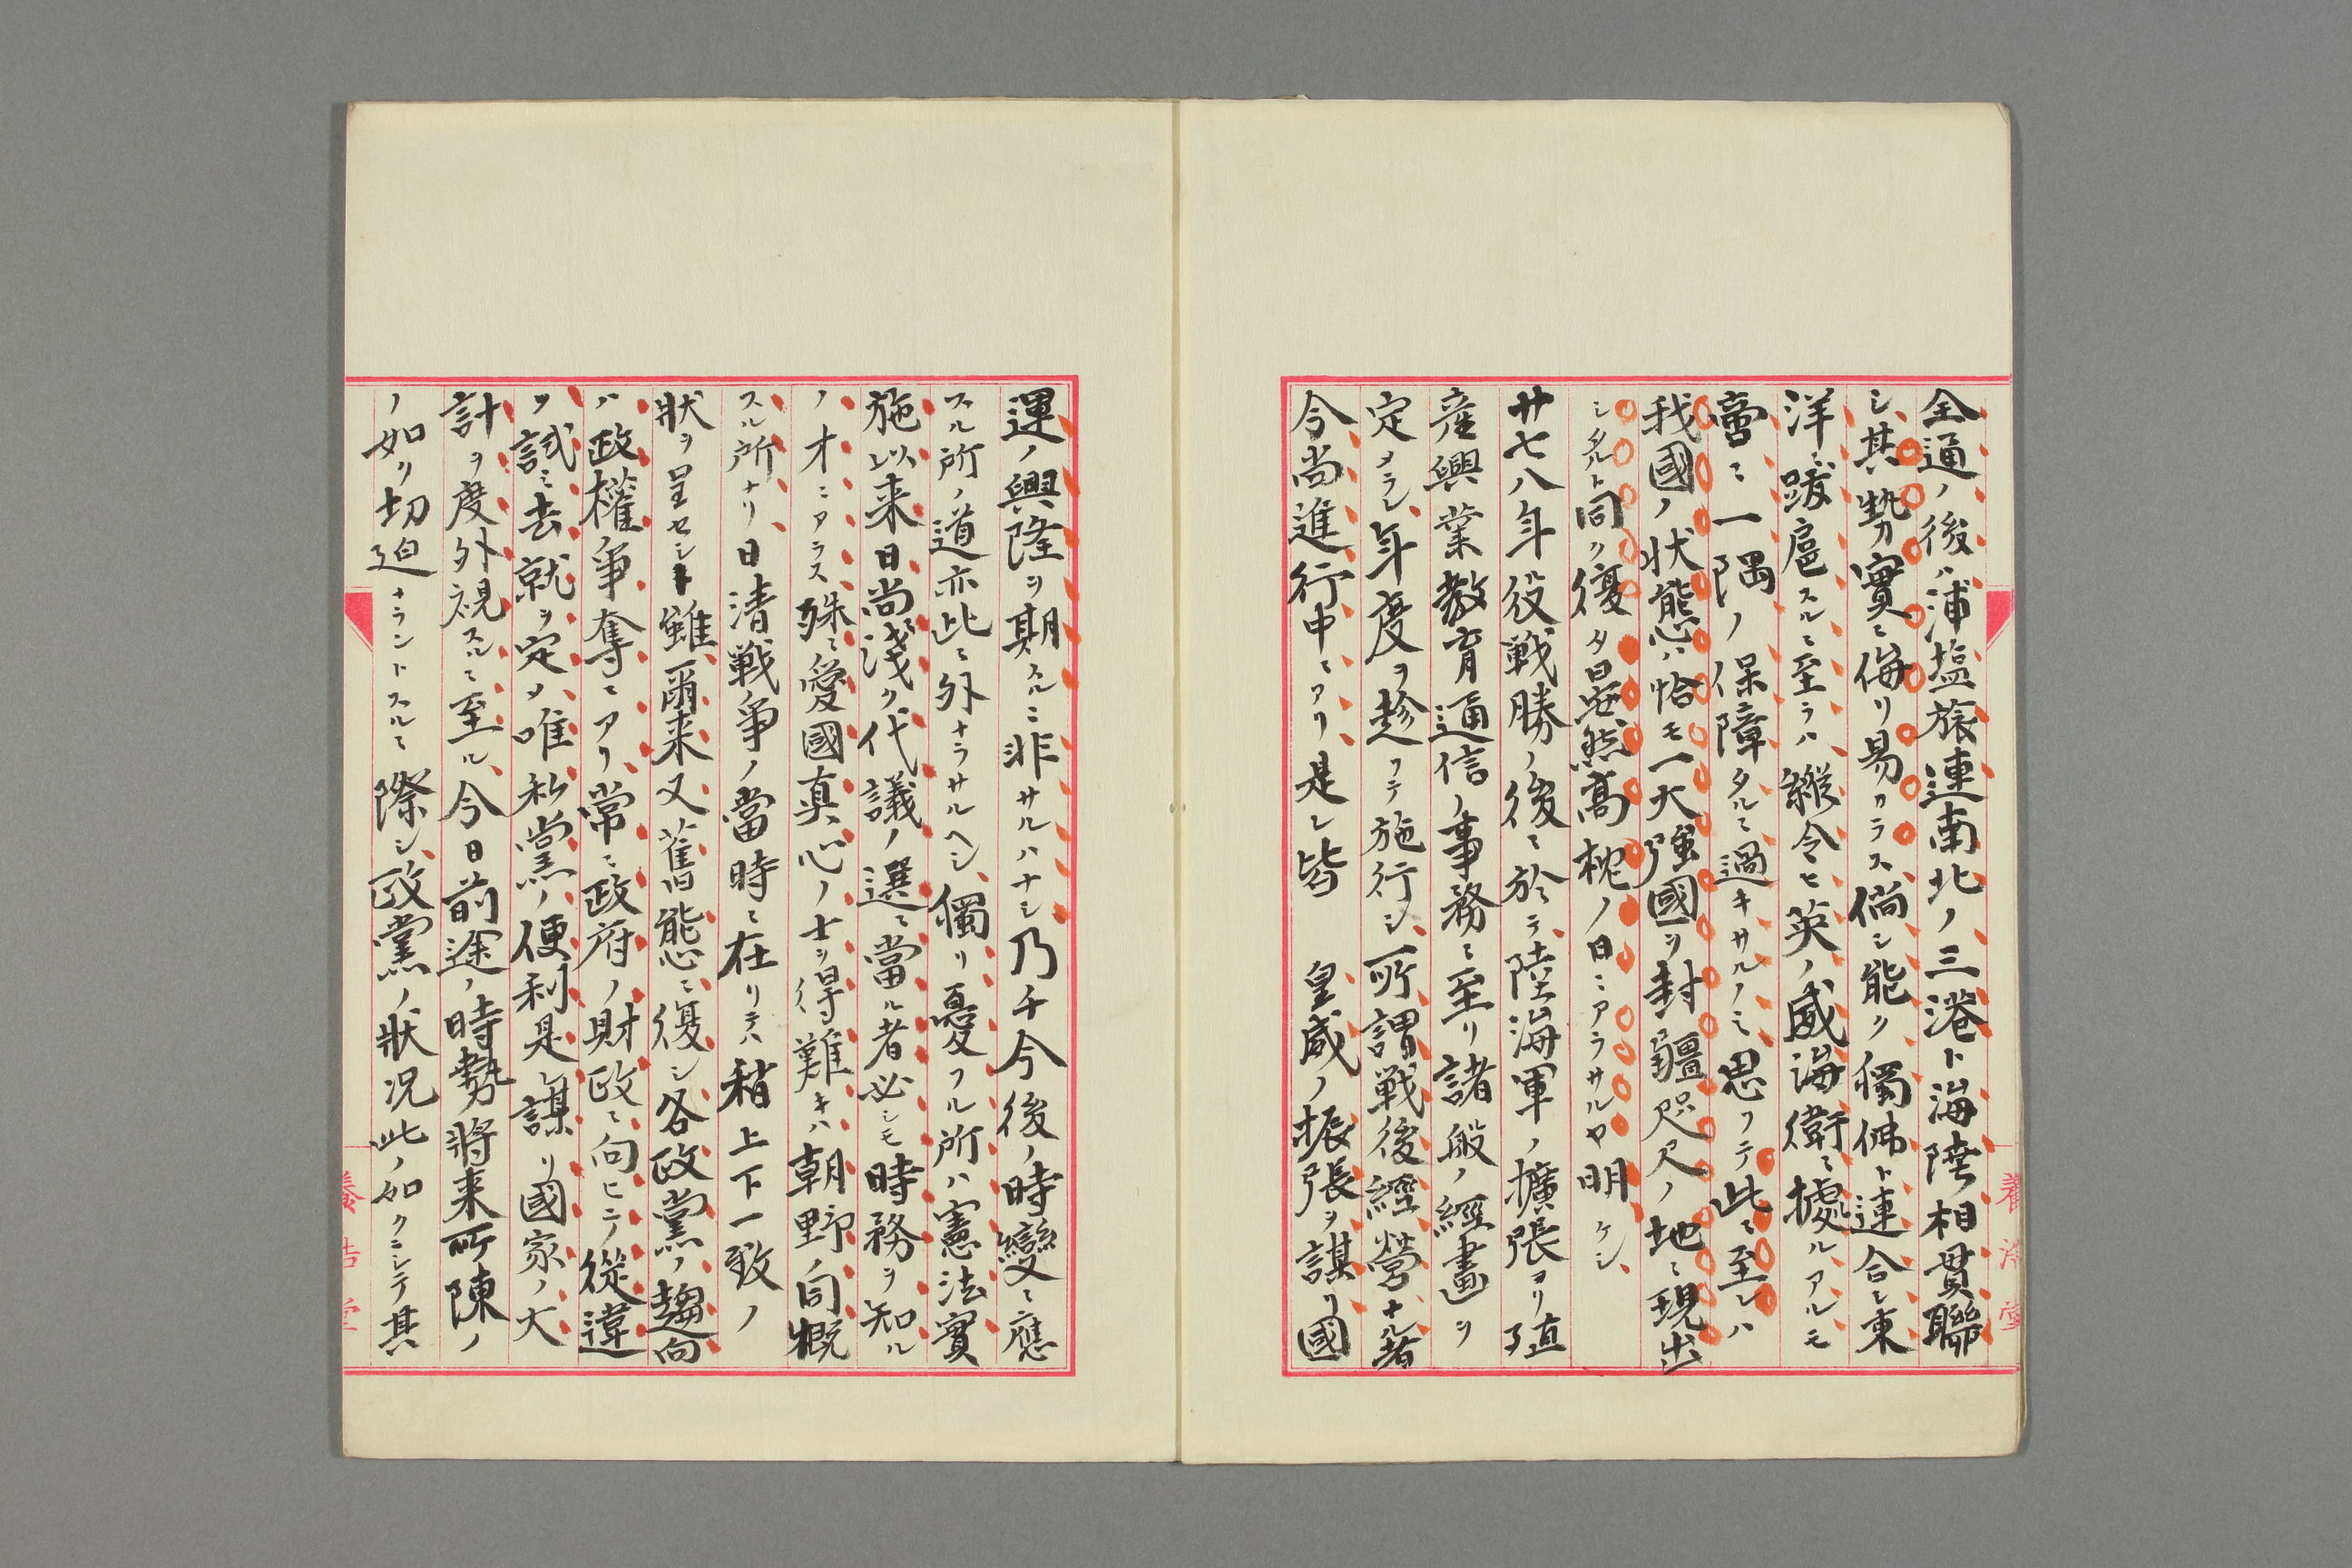 全通ノ後ハ浦塩旅連南北ノ三港ト海陸相貫聯
シ、其勢實ニ侮リ易カラス倘シ能ク獨佛ト連合シ東
洋ニ跋扈スルニ至ラハ縦令ヒ英ノ威海衛ニ據ルアルモ
啻ニ一隅ノ保障タルニ過キサルノミ思フテ此ニ至レハ
我國ノ状態ハ恰モ一大強國ヲ封疆咫尺ノ地ニ現出
シタルト同ク復タ晏然高枕ノ日ニアラサルヤ明ケシ、
廿七八年役戦勝ノ後ニ於テ、陸海軍ノ擴張ヨリ殖
産興業教育通信ノ事務ニ至リ諸般ノ經畫ヲ
定メラレ、年度ヲ趁フテ施行シ、所謂戦後經營ナル者
今尚進行中ニアリ、是レ皆 皇威ノ振張ヲ謀リ國
運ノ興隆ヲ期スルニ非サルハナシ乃チ今後ノ時變ニ應
スル所ノ道亦此ニ外ナラサルヘシ、獨リ憂フル所ハ憲法實
施以来日尚淺ク代議ノ選ニ當ル者必シモ時務ヲ知ル
ノ才ニアラス殊ニ愛國真心ノ士ヲ得難キハ朝野ノ同概
スル所ナリ、日清戦争ノ當時ニ在リテハ稍上下一致ノ
状ヲ呈セシト雖爾来又舊態ニ復シ各政黨ノ趨向
ハ政權争奪ニアリ、常ニ政府ノ財政ニ向ヒテ從違
ヲ試ミ去就ヲ定メ唯私黨ノ便利是レ謀リ國家ノ大
計ヲ度外視スルニ至ル、今日前途ノ時勢将来所陳ノ
ノ如リ切迫ナラントスルニ際シ、政黨ノ状况此ノ如クニシテ其